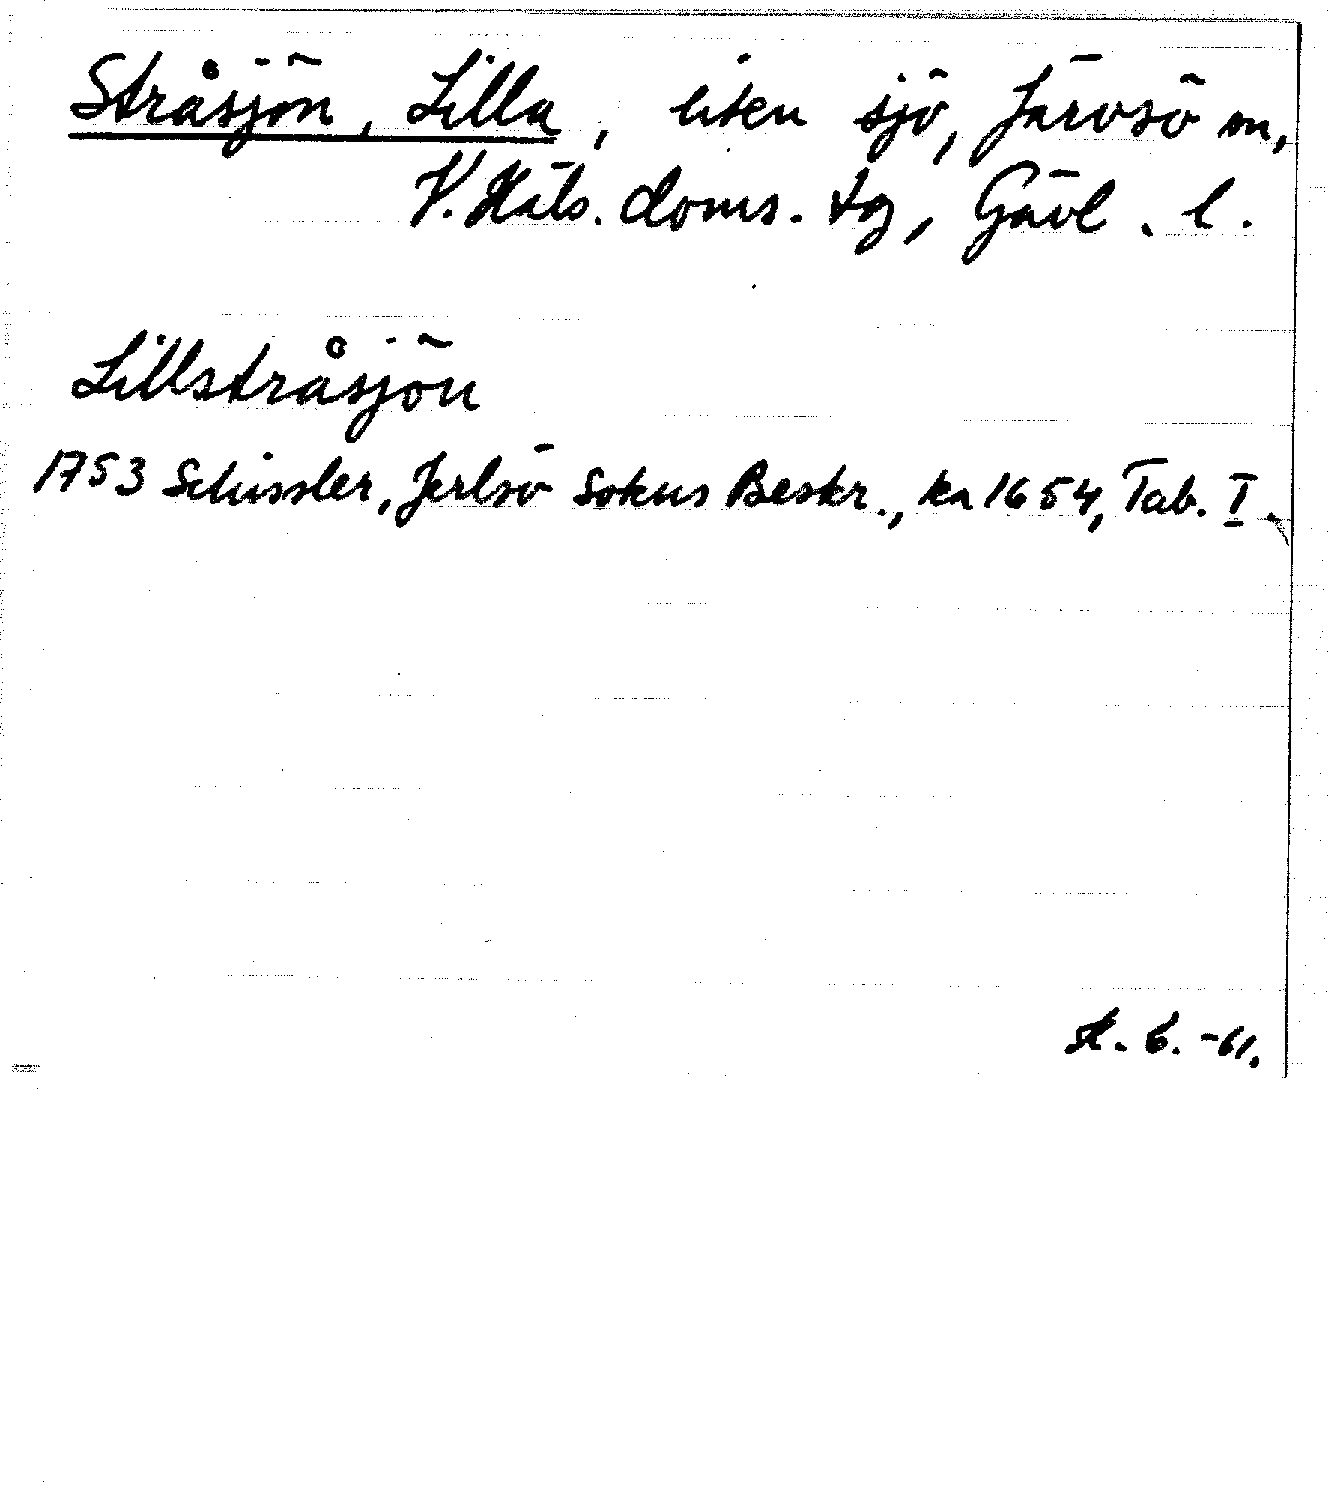 Stråsjön, Lilla, liten sjö, Järvsö sn,
V. Häls. doms. tg, Gävl. l.
Lillstråsjön
1753 Schissler, Jerlsö Sokns Beskr., ka 1654, Tab. I.
-61.